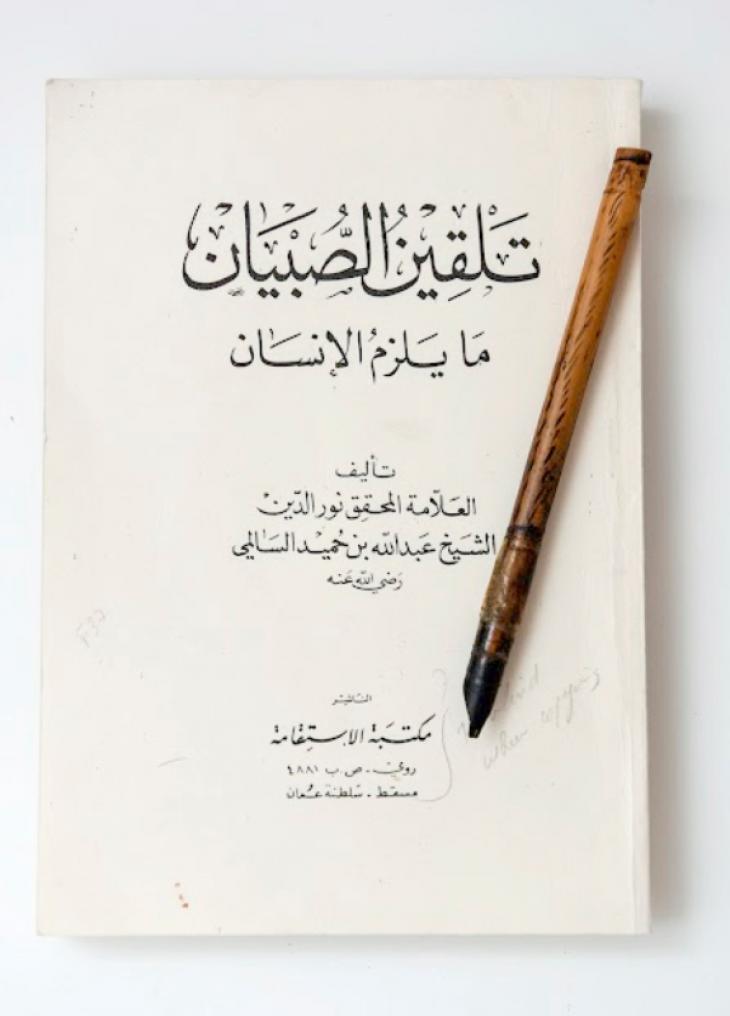 تَلْقِينُ الصُّبْيَان
مَا يَلزمُ الإنسَان
تأليف
العَلّامة المحقِق نور الدّين
الشيخ عَبدالله بن حُميد السَالمي
رَضي الله عَنه
الناشر
مكتبَة الإستِقامة
روي - ص.ب ٤٨٨١
مسقط - سَلطنة عُمان
when copying